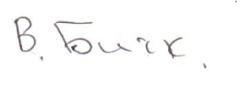 В. Бичк.